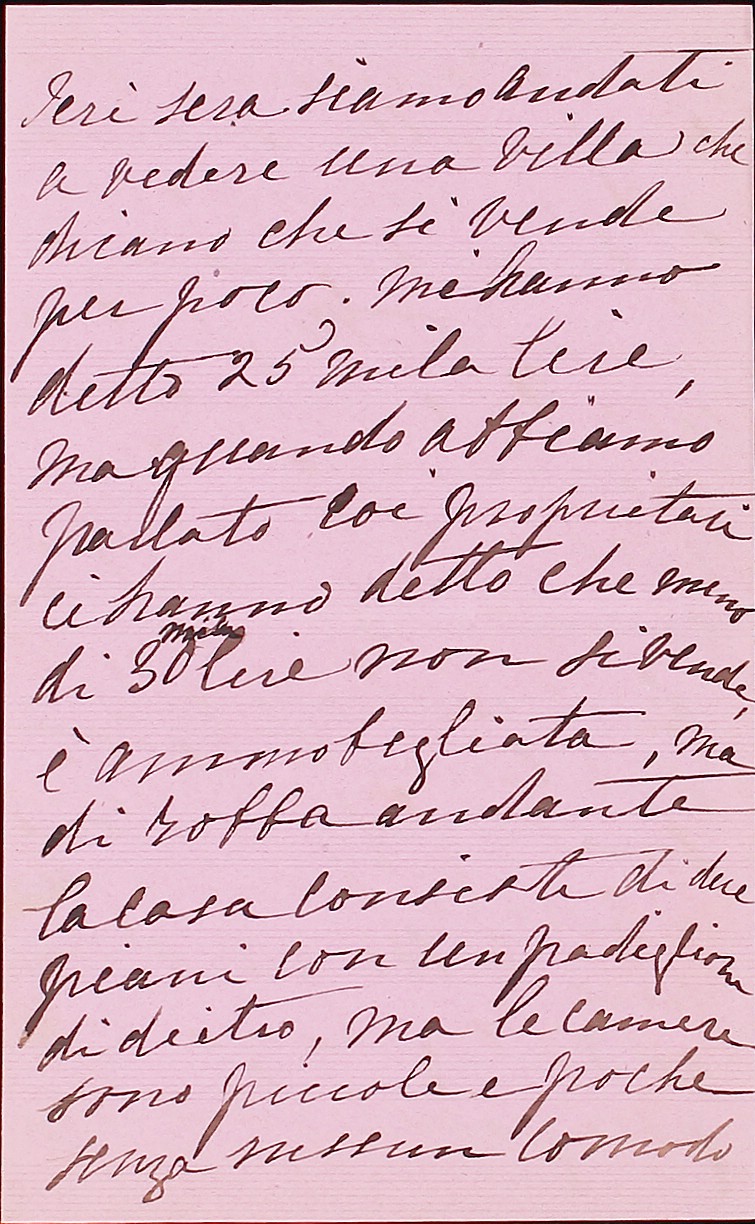 Ieri sera siamo andati
a vedere una villa che
dicano che si vende
per poco. mi hanno
detto 25 mila lire,
ma quando abbiamo
parlato coi proprietari
ci hanno detto che meno
di 30 mila lire non si vende,
è ammobegliata, ma
di robba andante
la casa consiste di due
piani con un padiglione
di deitro, ma le camere
sono piccole e poche
senza nessun comodo